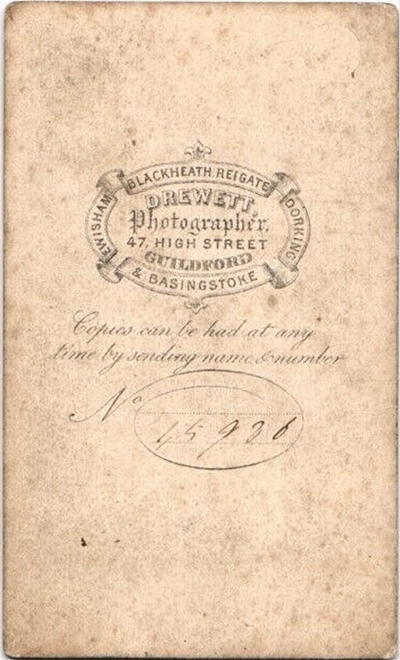 BLACKHEATH, REIGATE
LEWISHAM
DORKING
DREWETT,
Photographer,
47, HIGH STREET
GUILDFORD
& BASINGSTOKE
Copies can be had at any
time by sending name & number
No
45926